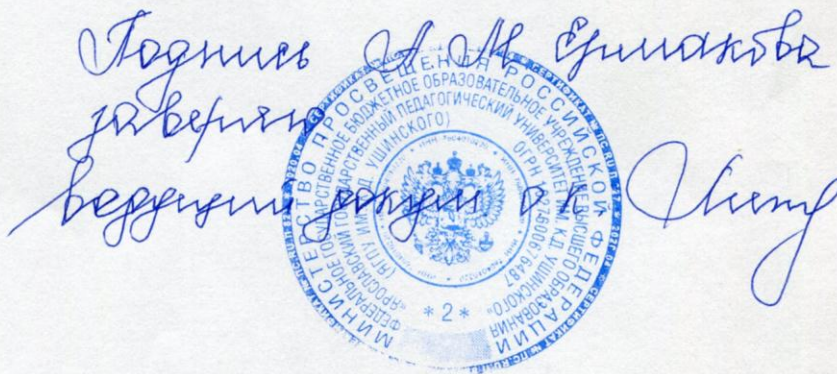 Подпись А М Ермакова
заверяю
ведущий докум. ОК
МИНИСТЕРСТВО ПРОСВЕЩЕНИЯ РОССИЙСКОЙ ФЕДЕРАЦИИ
ФЕДЕРАЛЬНОЕ ГОСУДАРСТВЕННОЕ БЮДЖЕТНОЕ ОБРАЗОВАТЕЛЬНОЕ УЧРЕЖДЕНИЕ ВЫСШЕГО ОБРАЗОВАНИЯ
"ЯРОСЛАВСКИЙ ГОСУДАРСТВЕННЫЙ ПЕДАГОГИЧЕСКИЙ УНИВЕРСИТЕТ ИМ. К.Д. УШИНСКОГО"
УШИНСКОГО) ОГРН
* 2 *